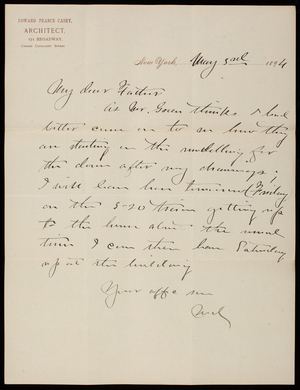 EDWARD PEARCE CASEY,
ARCHITECT,
171 BROADWAY,
New York, May 3rd 1894
My dear Father
As Mr. Green thinks I had
better come on to see how they
are starting on the modelling for
the dome after my drawings.
I will leave here tomorrow (Friday
on the 3-20 train getting up
to the house about the usual
time I can then be here Saturday
up at the building
Your affc son
Ned